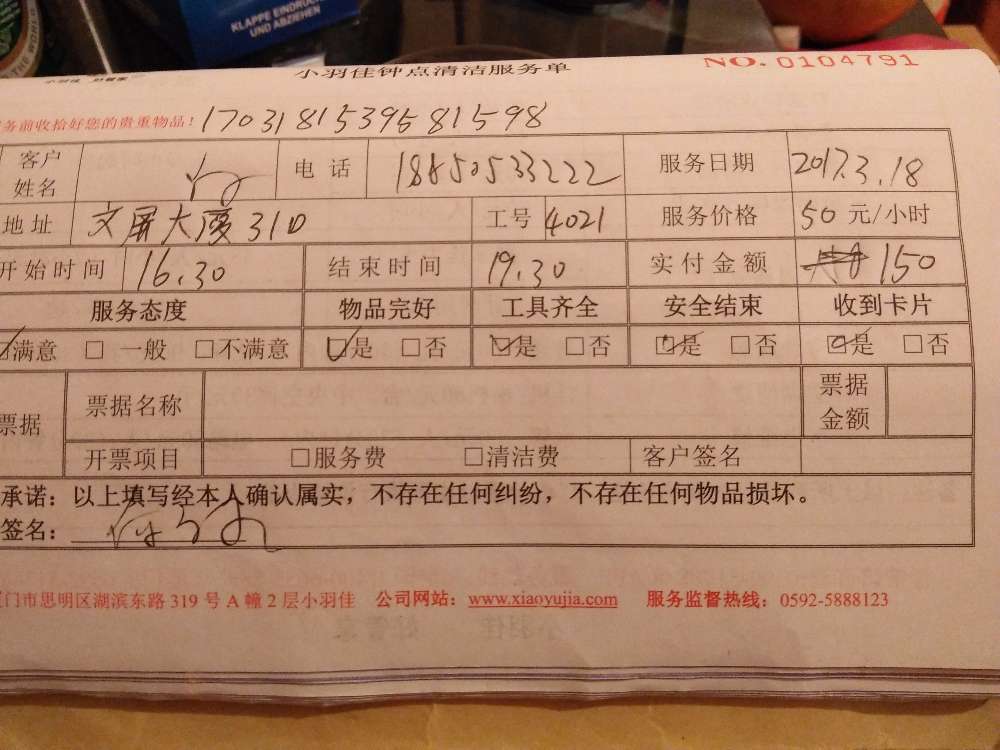 KLAPPE EINDRÜ
UND ABZIEHEN
THE WORL
小羽佳 好管家
小羽佳钟点清洁服务单 NO. 0104791
务前收拾好您的贵重物品! 17031815395681598
客户姓名 电 话 18850533222 服务日期 2017.3.18
地址 文屏大厦31D 工号 4021 服务价格 50 元/小时
开始时间 16.30 结束时间 19.30 实付金额 150
服务态度 物品完好 工具齐全 安全结束 收到卡片
☑满意 □ 一般 □不满意 ☑是 □否 ☑是 □否 ☑是 □否 ☑是 □否
票据 票据名称 票据金额
开票项目 □服务费 □清洁费 客户签名
承诺：以上填写经本人确认属实，不存在任何纠纷，不存在任何物品损坏。
签名：
门市思明区湖滨东路 319 号 A 幢 2 层小羽佳 公司网站：www.xiaoyujia.com 服务监督热线：0592-5888123